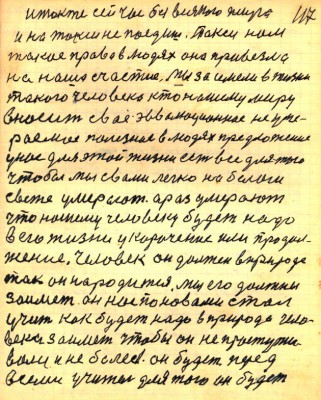 117
и токте сейчас би всякого жира
и на такие не поедиш. Такси нам
такое право в людях она привезла
на наше счастие. Мы заимеем в жизни
такого человека кто нашему миру
вносит свае эволюционное не уме-
раемое полезнае в людях предложение
у нас для этой жизни есть все для того
чтобы мы с вами легко на белом
свете умерают. а раз умерают
что нашему человеку будет надо
в его жизни укорочение или продол-
жение. Человек он должен в природе
так он народится, мы его должны
заимет. он нас по новами стал
учит как будет надо в природе чело-
века заимет чтобы он не простужи-
вали и не болел. он будет перед
всеми учител для того он будет